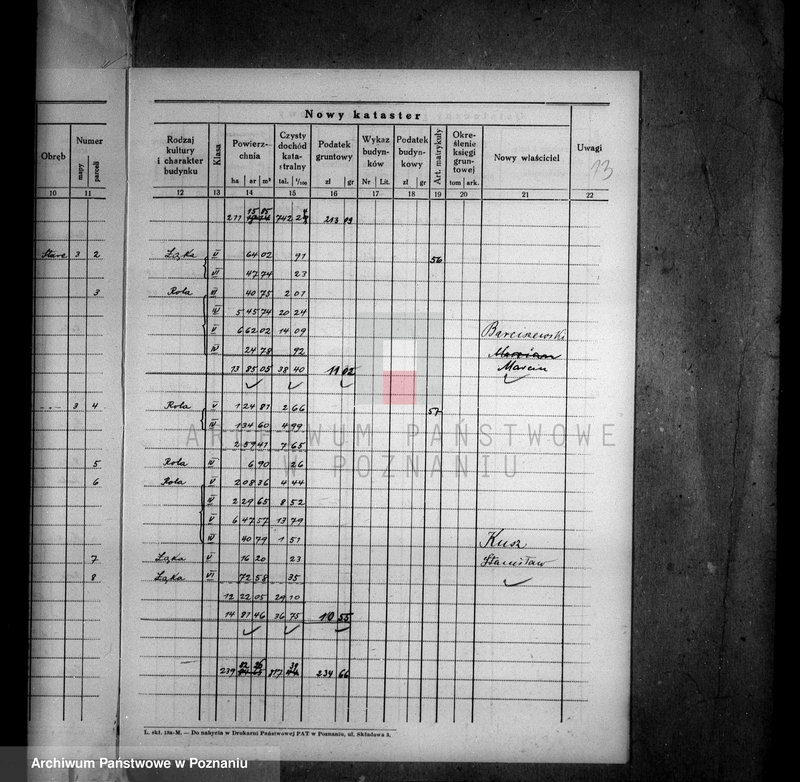 Nowy kataster
Obręb
Numer
mapy
parceli
Rodzaj kultury i charakter budynku
Klasa
Powierzchnia
ha ar m²
Czysty dochód katastralny
tal. ¹/₁₀₀
Podatek gruntowy
zł gr
Wykaz budynków
Nr Lit.
Podatek budynkowy
zł gr
Art. matrykuły
Określenie księgi gruntowej
tom ark.
Nowy właściciel
Uwagi
13
10 11 12 13 14 15 16 17 18 19 20 21 22
211 742 213 09
Stare 3 2 Łąka V 64 02 91 56
VI 47 74 23
3 Rola III 40 75 2 01
IV 5 45 74 20 24
V 6 62 02 14 09 Barciszewski
24 78 92
13 85 05 38 40 11 02 Marcin
3 4 Rola V 1 24 81 2 66 57
IV 1 34 60 4 99
2 59 41 7 65
5 Rola IV 6 90 26
6 Rola V 2 08 36 4 44
IV 2 29 65 8 52
V 6 47 57 13 79
IV 40 79 1 51 Kusz
7 Łąka V 16 20 23 Stanisław
8 Łąka VI 72 58 35
12 22 05 29 10
14 81 46 36 75 10 55
239 817 234 66
L. skł. 18a-M. — Do nabycia w Drukarni Państwowej PAT w Poznaniu, ul. Składowa 3.
ARCHIWUM PAŃSTWOWE
W POZNANIU
Archiwum Państwowe w Poznaniu